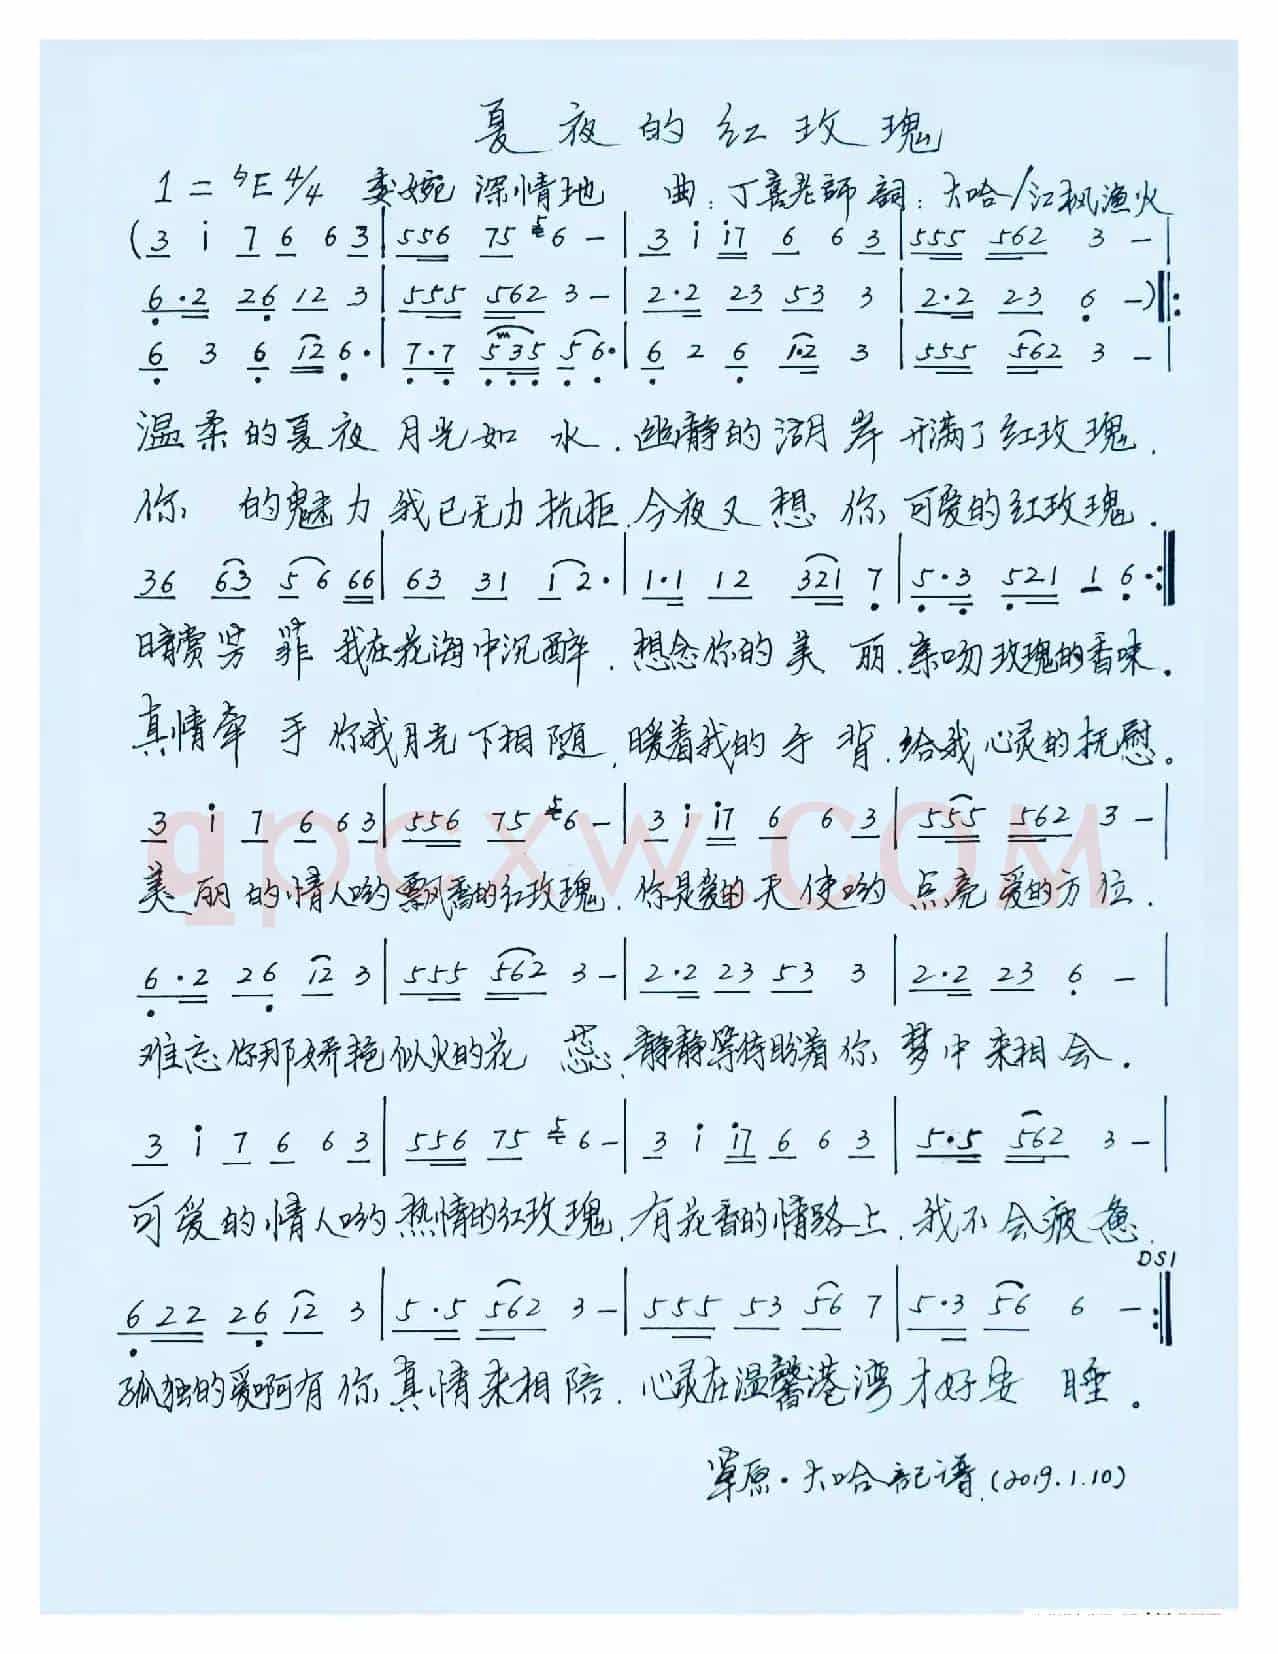 夏夜的红玫瑰
1=♭E 4/4 委婉 深情地 曲:丁喜老師 詞:大哈/江枫渔火
(3 i 7 6 6 3 | 556 75 5 6 – | 3 i i7 6 6 3 | 555 562 3 – |
6·2 26 12 3 | 555 562 3 – | 2·2 23 53 3 | 2·2 23 6 –)‖:
6 3 6 12 6· | 7·7 535 56· | 6 2 6 1·2 3 | 555 562 3 – |
温柔的夏夜 月光如 水.幽静的湖岸 开满了红玫瑰.
你 的魅力 我已无力抗拒.今夜又想 你 可爱的红玫瑰.
36 63 56 66 | 63 31 12· | 1·1 12 321 7 | 5·3 521 1 6·:‖
暗赏芳 菲 我在花海中沉醉.想念你的美 丽.亲吻玫瑰的香味.
真情牵 手 你我月光下相随.暖着我的手 背.给我心灵的抚慰。
3 i 7 6 6 3 | 556 75 5 6 – | 3 i i7 6 6 3 | 555 562 3 – |
qpcxw.com
美丽的情人哟 飘香的红玫瑰.你是爱的天使哟 点亮 爱的方位.
6·2 26 12 3 | 555 562 3 – | 2·2 23 53 3 | 2·2 23 6 – |
难忘你那娇艳 似火的花 蕊.静静等待盼着你 梦中来相会.
3 i 7 6 6 3 | 556 75 5 6 – | 3 i i7 6 6 3 | 5·5 562 3 – |
可爱的情人哟 热情的红玫瑰.有花香的情路上.我不会疲惫.
DS1
622 26 12 3 | 5·5 562 3 – | 555 53 56 7 | 5·3 56 6 – :‖
孤独的爱啊有你 真情来相陪.心灵在温馨港湾 才好安 睡。
草原·大哈記谱.(2019.1.10)